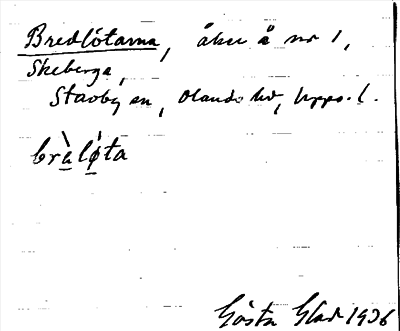 Bredlötarna, åker å nr 1,
Skeberga,
Stavby sn, Olands hd, Upps. l.
bràlø̀ta
Gösta Glad 1936